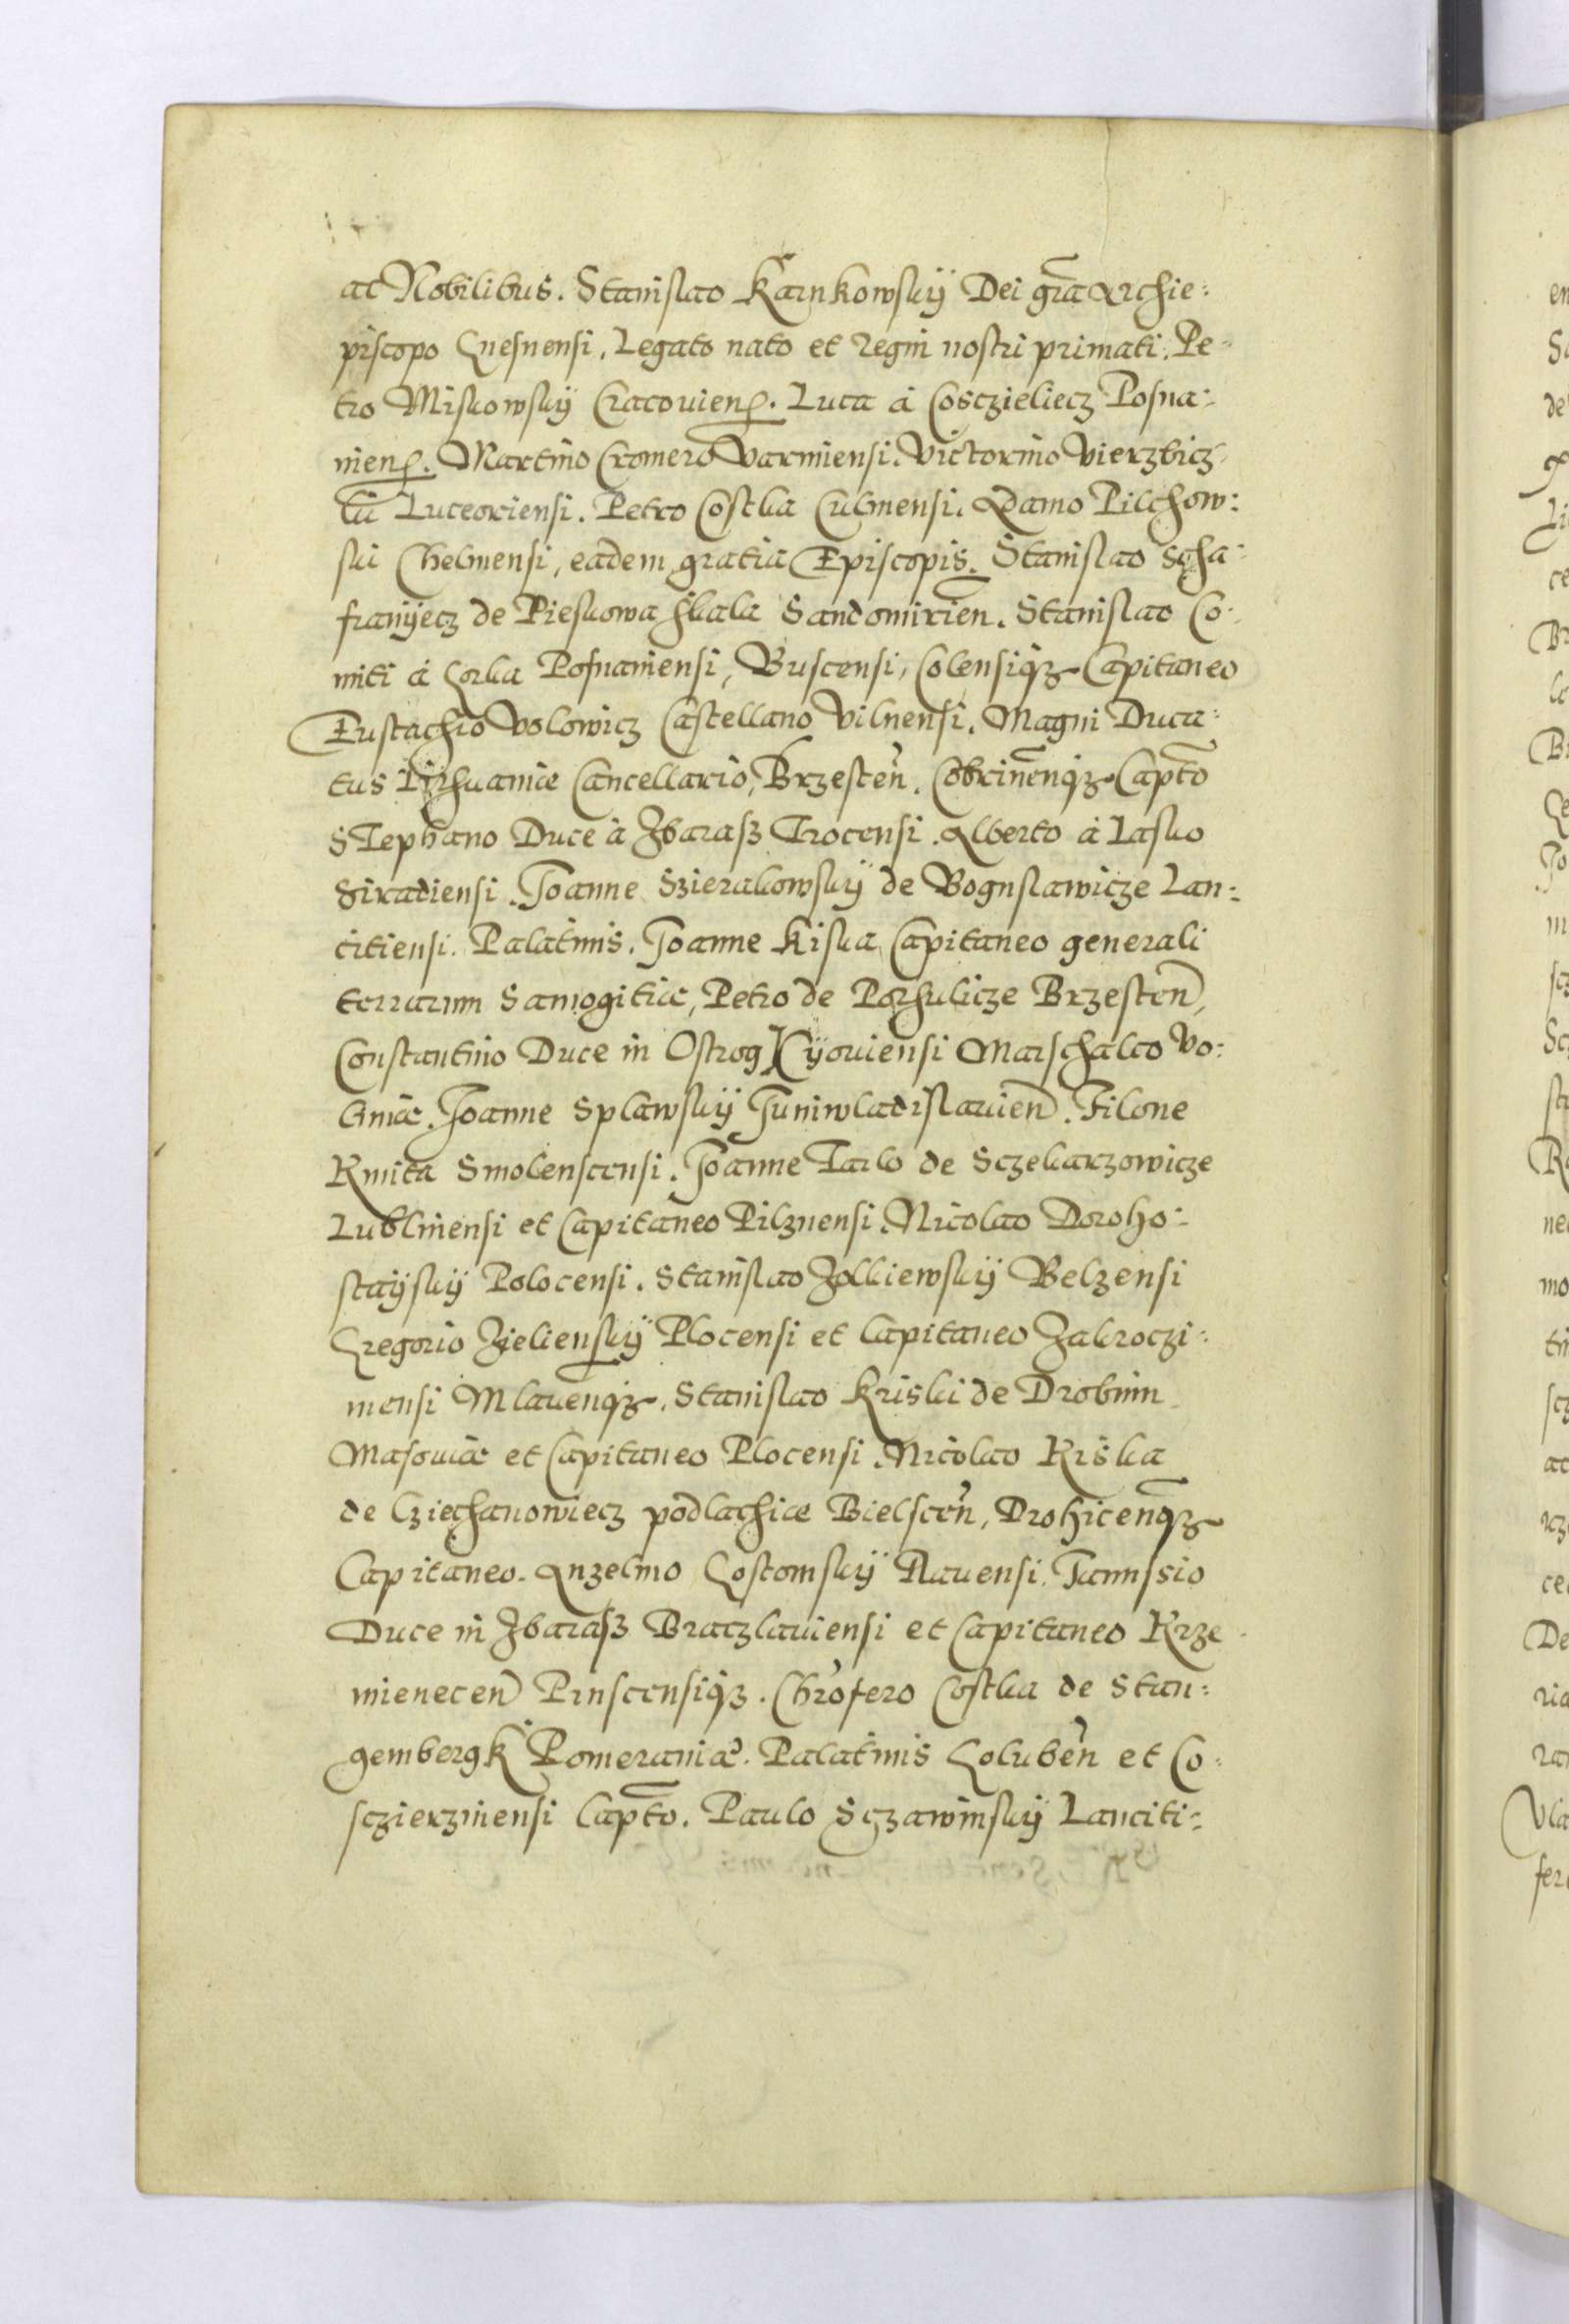 ac Nobilibus. Stanislao Karnkowskÿ Dei gr̃a Archie:
piscopo Gnesnensi, Legato nato et regni nostri primati. Pe-
tro Miskowskÿ Cracouien̄. Luca à Cosczieliecz Posna:
nien̄. Martino Cromero Varmiensi. Victorino Vierzbicz-
ku Luceoriensi. Petro Costka Culmensi. Adamo Pilchow:
ski Chelmensi, eadem gratia Episcopis. Stanislao Scha-
franÿecz de Pieskowa skala Sandomirien̄. Stanislao Co-
miti à Gorka Posnaniensi, Buscensi, Colensiq₃ Capitaneo
Eustachio Volowicz Castellano Vilnensi. Magni Duca:
tus Lithuaniæ Cancellario, Brzesten̄. Cobrinen̄q₃ Capt̄o
STephano Duce à Zbarasz Trocensi. Alberto à Lasko
Siradiensi. Joanne Szierakowskÿ de Boguslawicze Lan:
citiensi. Palatinis. Joanne Kiska Capitaneo generali
terrarum Samogitiæ, Petro de Porhulicze Brzesten̄,
Constantino Duce in Ostrog Kÿouiensi Marschalco Vo:
liniæ. Joanne Splawskÿ Juniwladislauien̄. Filone
Kmita Smolenscensi. Joanne Tarlo de Sczekarzowicze
Lublinensi et Capitaneo Pilznensi. Nicolao Doroho:
staÿskÿ Polocensi. Stanislao Zolkiewskÿ Belzensi
Gregorio Zielienskÿ Plocensi et Capitaneo Zakroczi:
mensi Mlauenq₃. Stanislao Kriski de Drobnin
Masouiæ et Capitaneo Plocensi. Nicolao Kiska
de Cziechanowiecz podlachiæ Bielscen̄, Drohicenq₃
Capitaneo. Anzelmo Gostomskÿ Rauensi. Janussio
Duce in Zbarasz Braczlauiensi et Capitaneo Krze-
mienecen̄ Pinscensiq₃. Chr̄ofero Costka de Stan:
gembergk Pomeraniæ. Palatinis Goluben̄ et Co-
sczierzinensi Capt̄o. Paulo Sczawinskÿ Lanciti: